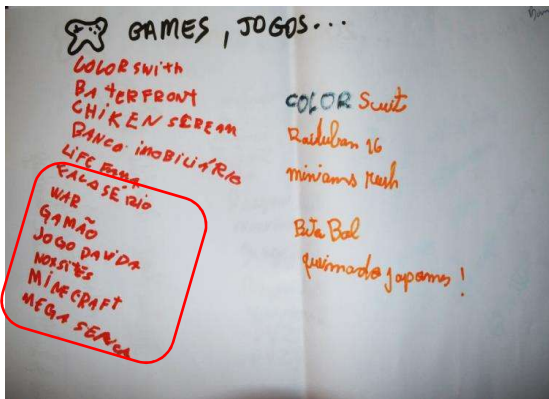 GAMES, JOGOS...
COLOR SWITH
BATERFRONT
CHIKEN SCREAM
BANCO IMOBILIÁRIO
LIFE
FALA SÉRIO
WAR
GAMÃO
JOGO DA VIDA
MINECRAFT
MEGA SENCA
COLOR Suit
16
miniams Rush
Bol
queimado japones!